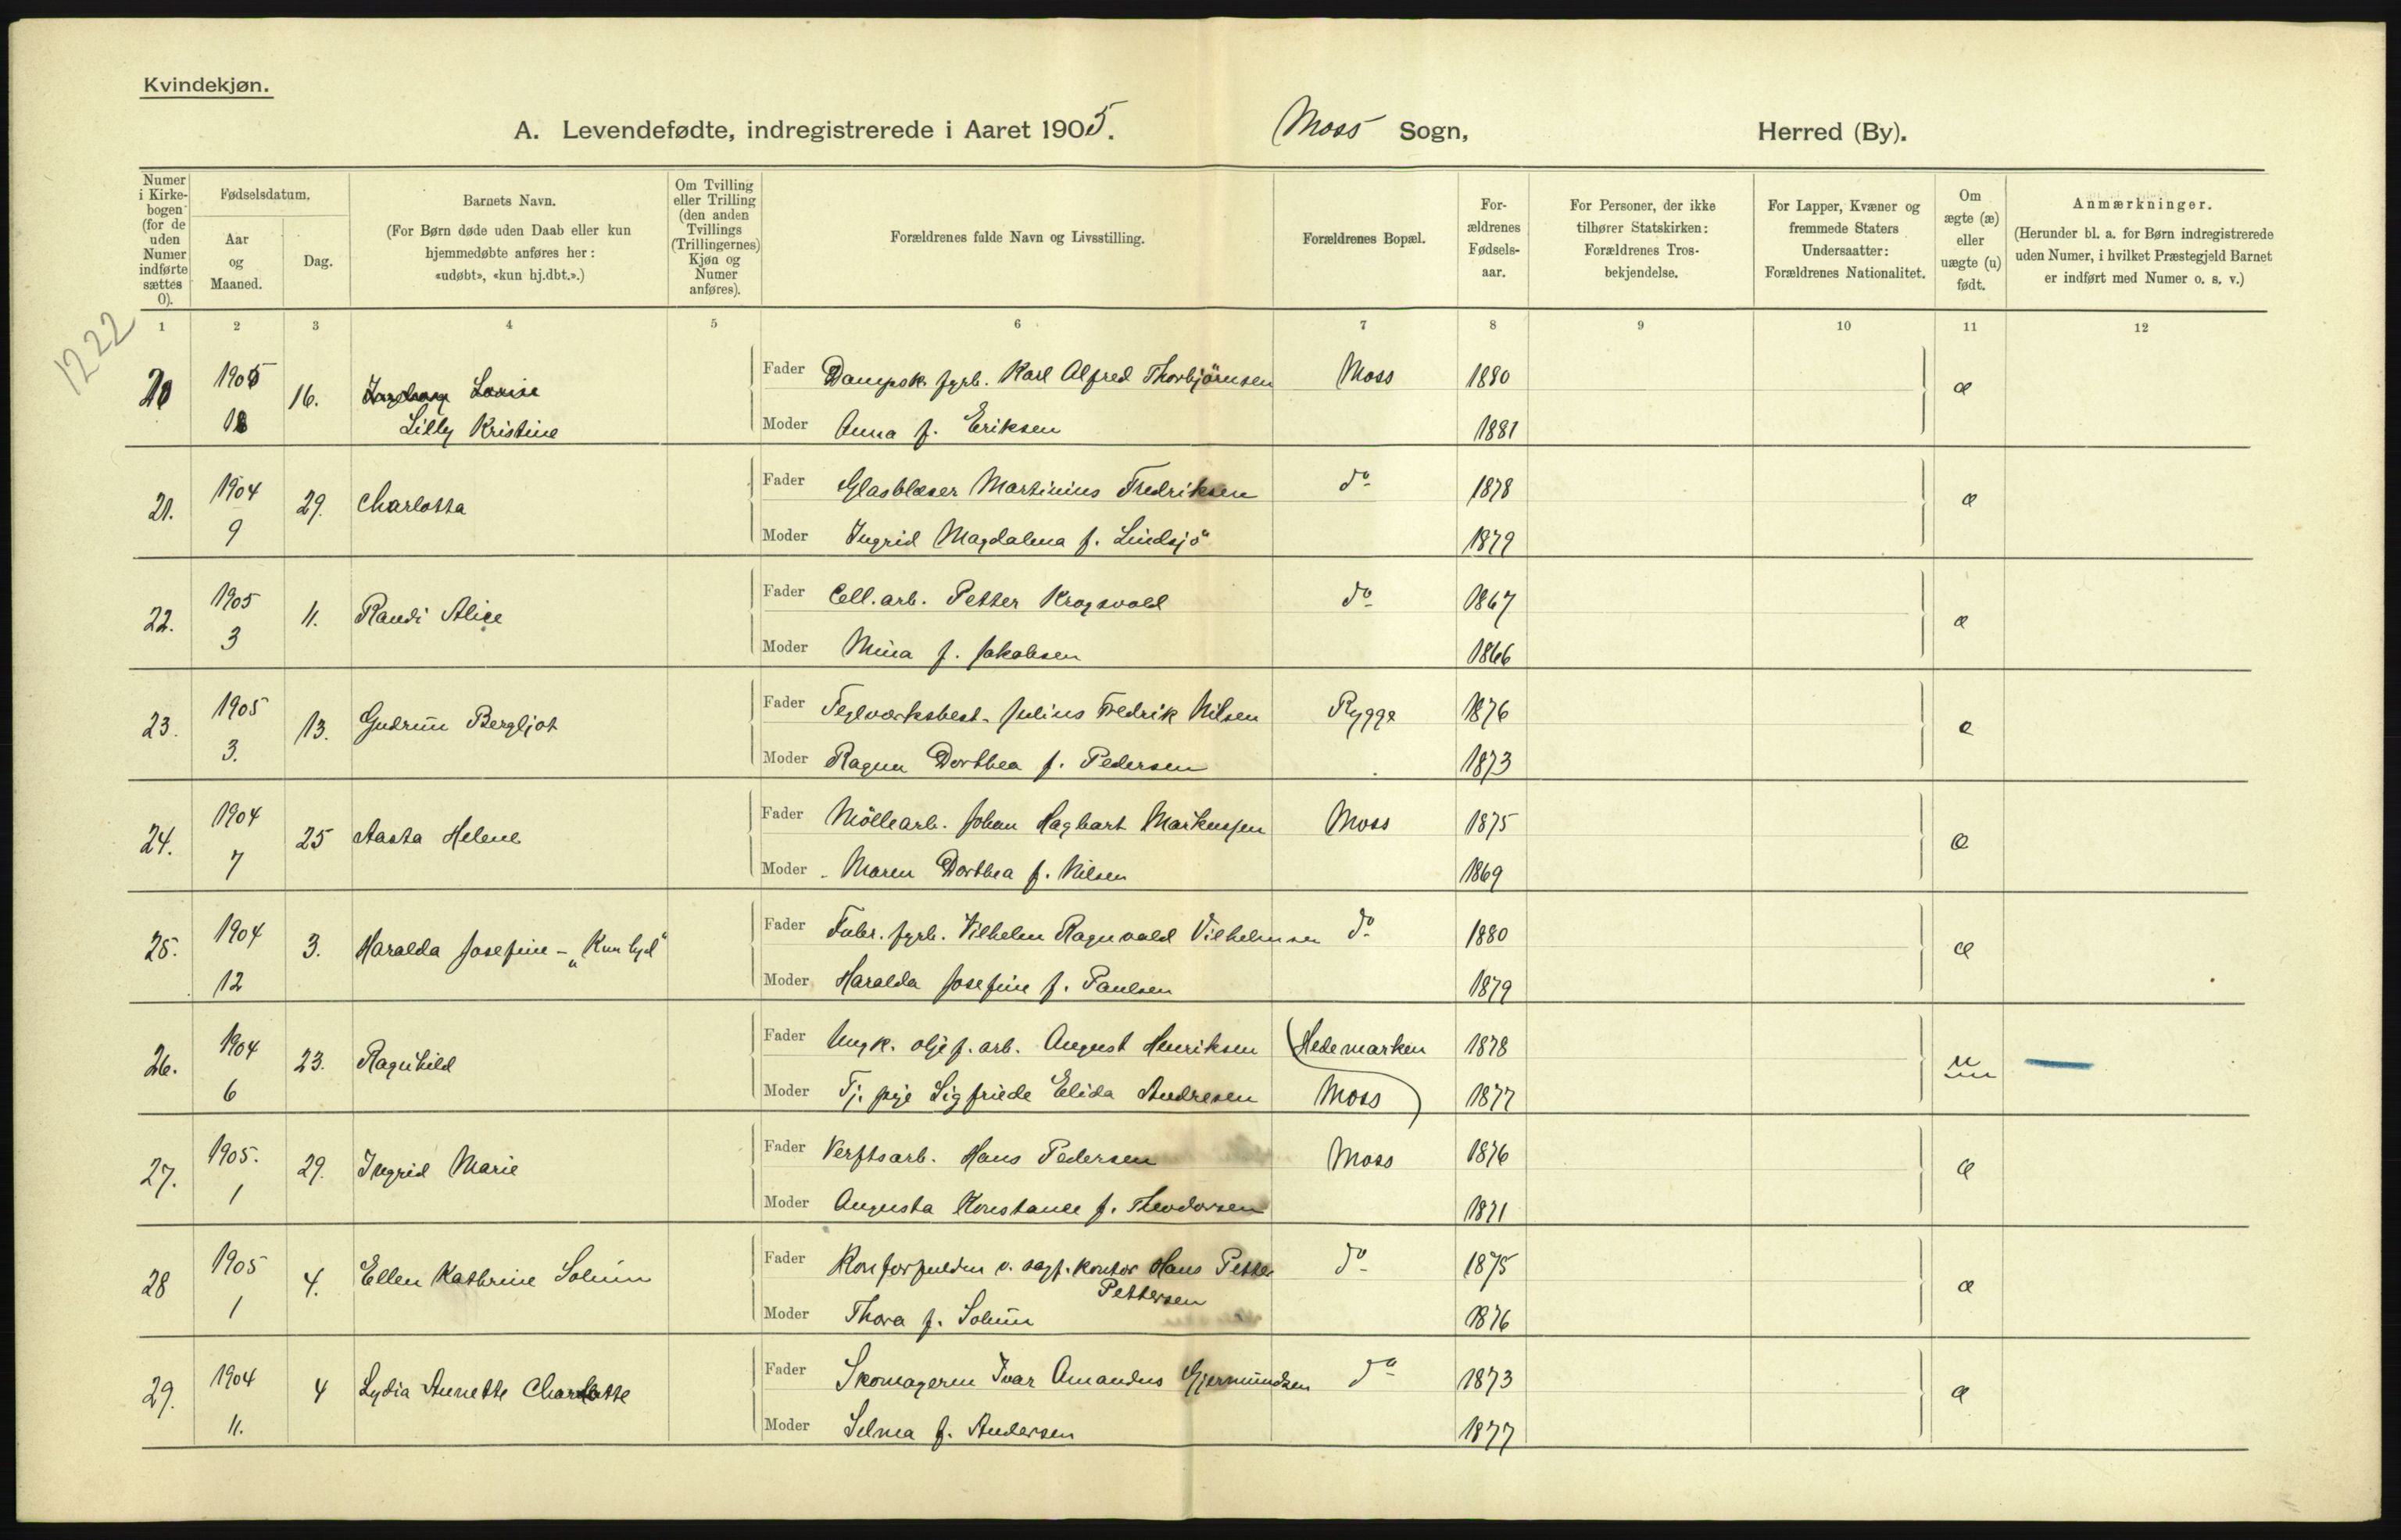 Kvindekjøn.
A. Levendefødte, indregistrerede i Aaret 1905. Moss Sogn, Herred (By).
Numer i Kirke-bogen (for de uden Numer indførte sættes 0).
Fødselsdatum.
Aar og Maaned.
Dag.
Barnets Navn.
(For Børn døde uden Daab eller kun hjemmedøbte anføres her: «udøbt», «kun hj.dbt.».)
Om Tvilling eller Trilling (den anden Tvillings (Trillingernes) Kjøn og Numer anføres).
Forældrenes fulde Navn og Livsstilling.
Forældrenes Bopæl.
For-ældrenes Fødsels-aar.
For Personer, der ikke tilhører Statskirken: Forældrenes Tros-bekjendelse.
For Lapper, Kvæner og fremmede Staters Undersaatter: Forældrenes Nationalitet.
Om ægte (æ) eller uægte (u) født.
Anmærkninger.
(Herunder bl. a. for Børn indregistrerede uden Numer, i hvilket Præstegjeld Barnet er indført med Numer o. s. v.)
1 2 3 4 5 6 7 8 9 10 11 12
1222
20 1905 16. Louise Fader Dampsk. fyrb. Karl Alfred Thorbjörnsen Moss 1880 æ
Lilly Kristine Moder Anna f. Eriksen 1881
21. 1904 29. Charlotta Fader Glasblæser Martinius Fredriksen do 1878 æ
9 Moder Ingrid Magdalena f. Lindsjö 1879
22. 1905 11. Randi Alice Fader Cell. arb. Petter Krogsvold do 1867 æ
3 Moder Mina f. Jakobsen 1866
23. 1905 13. Gudrun Bergljot Fader Teglværksbest. Julius Fredrik Nilsen Rygge 1876 æ
3. Moder Ragna Dorthea f. Pedersen 1873
24. 1904 25 Aasta Helene Fader Möllearb. Johan Hagbart Markussen Moss 1875 æ
7 Moder Maren Dorthea f. Nilsen 1869
25. 1904 3. Haralda Josefine - „Kun hjd“ Fader Fabr. fyrb. Vilhelm Ragnvald Vilhelmsen do 1880 æ
12 Moder Haralda Josefine f. Paulsen 1879
26. 1904 23. Ragnhild Fader Ungk. oljef. arb. August Henriksen Hedemarken 1878 u
6 Moder Tj. pige Sigfriede Elida Andresen Moss 1877
27. 1905. 29. Ingrid Marie Fader Verftsarb. Hans Pedersen Moss 1876 æ
1 Moder Augusta Konstance f. Theodorsen 1871
28 1905 4. Ellen Kathrine Solum Fader Hans Petter do 1875 æ
Pettersen
1 Moder Thora f. Solum 1876
29. 1904 4 Lydia Annette Charlotte Fader Skomagerm Ivar Amandus Gjermundsen do 1873 æ
11. Moder Selma f. Andersen 1877